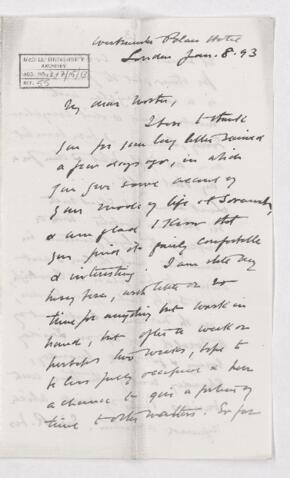 Westminster Palace Hotel
London Jan. 8. 93
McGILL UNIVERSITY
ARCHIVES
ACC. NO.
REF. 55
My dear
I have to thank
you for your long letter received
a few days ago, in which
you give some account of
your mode of life at
I am glad to know that
you find it fairly comfortable
& interesting. I am
busy here, with little or no
time for anything but work in
hand, but after a week or
perhaps two weeks, hope to
be less fully occupied & have
a chance to give a
time to other matters. So far